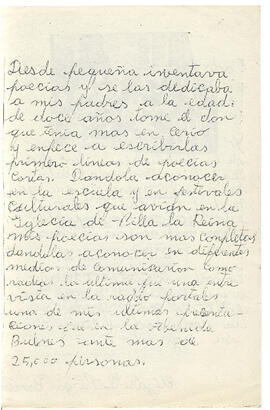 Desde pequeña inventava
poecias y se las dedicaba
a mis padres a la edad
de doce años tome el don
que tenia mas en cerio
y enpece a escribirlas
primero lineas de poecias
cortas. Dandola aconocer
en la escuela y en festivales
culturales que avian en la
Iglecia de Villa la Reina
mis poecias son mas completas
dandolas aconocer en diferentes
medios de comunisacion como
radios la ultima fue una entre
vista en la radio portales
una de mis ultimas precenta-
ciones fue en la Abenida
Bulnes ante mas de
25,000 personas.